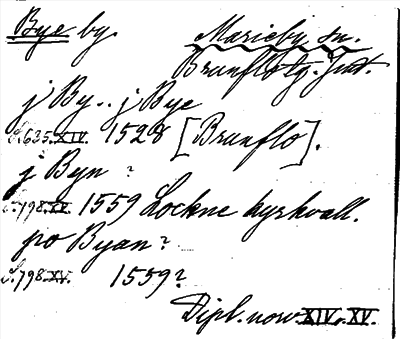 Bye by. Marieby sn.
Brunflo tg. Jmt.
j By.. j Bye
S.635.XIV. 1528 [Brunflo].
j Byn ?
S.798.XV. 1559 Lockne kyrkvall.
po Byan ?
S.798.XV. 1559?
Dipl. norv. XIV. XV.